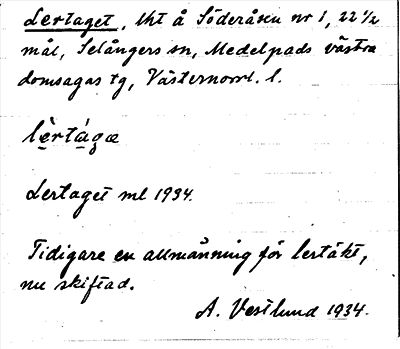 Lertaget, Uht å Söderåsen nr 1, 22 ½
mål, Selångers sn, Medelpads västra
domsagas tg, Västernorrl. l.
lèrtágæ
Lertaget ml 1934.
Tidigare en allmänning för lertäkt,
nu skiftad.
A. Vestlund 1934.